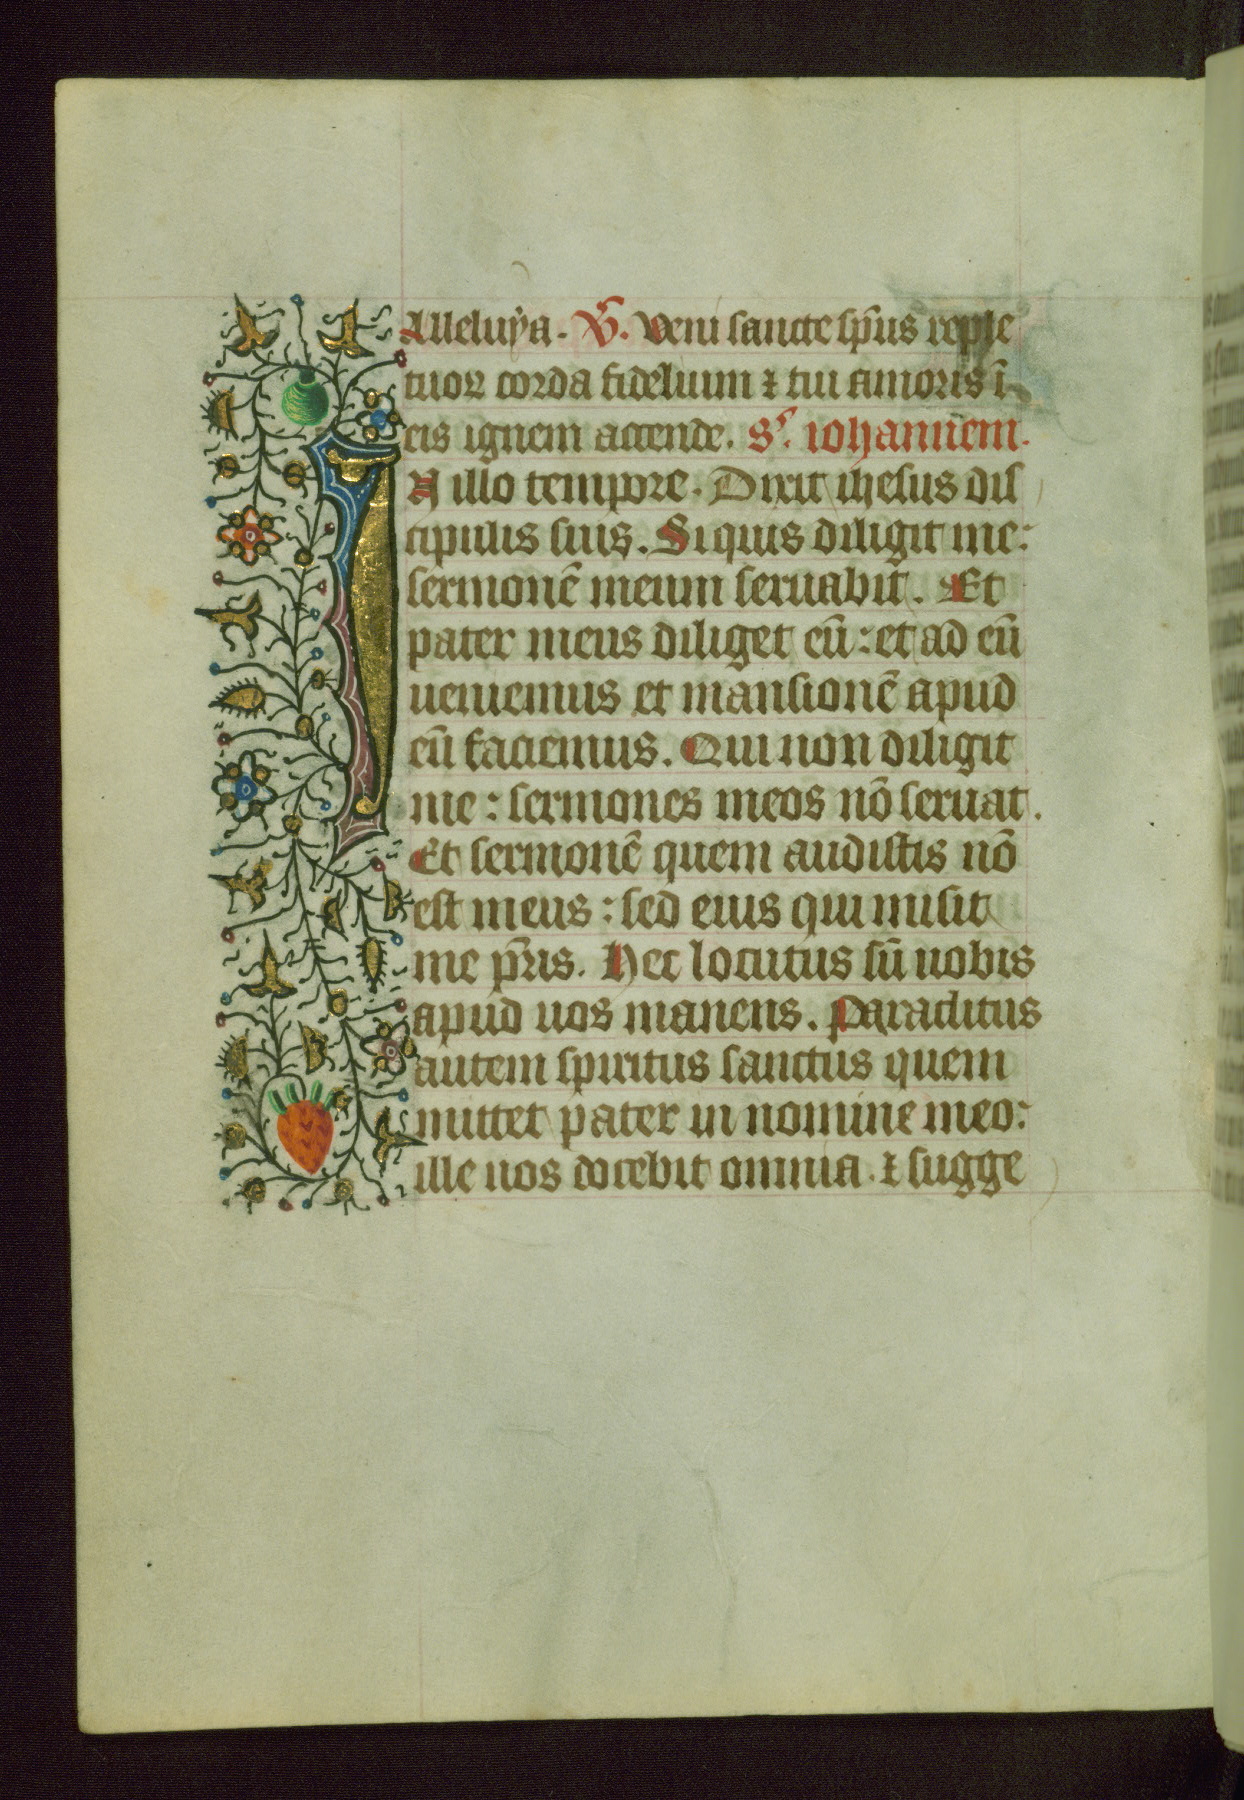 Alleluya. V̄. Veni sancte sp̄us reple
tuoꝝ corda fidelium ⁊ tui amoris ī
eis ignem accende. Sᵉ. iohannem.
IN illo tempore. Dixit ihesus dis
cipulis suis. Si quis diligit me:
sermonē meum seruabit. Et
pater meus diliget eū: et ad eū
ueniemus et mansionē apud
eū faciemus. Qui non diligit
me: sermones meos nō seruat.
Et sermonē quem audistis nō
est meus: sed eius qui misit
me p̄ris. Hec locutus sū uobis
apud uos manens. Paraclitus
autem spiritus sanctus quem
mittet pater in nomine meo:
ille uos docebit omnia ⁊ sugge